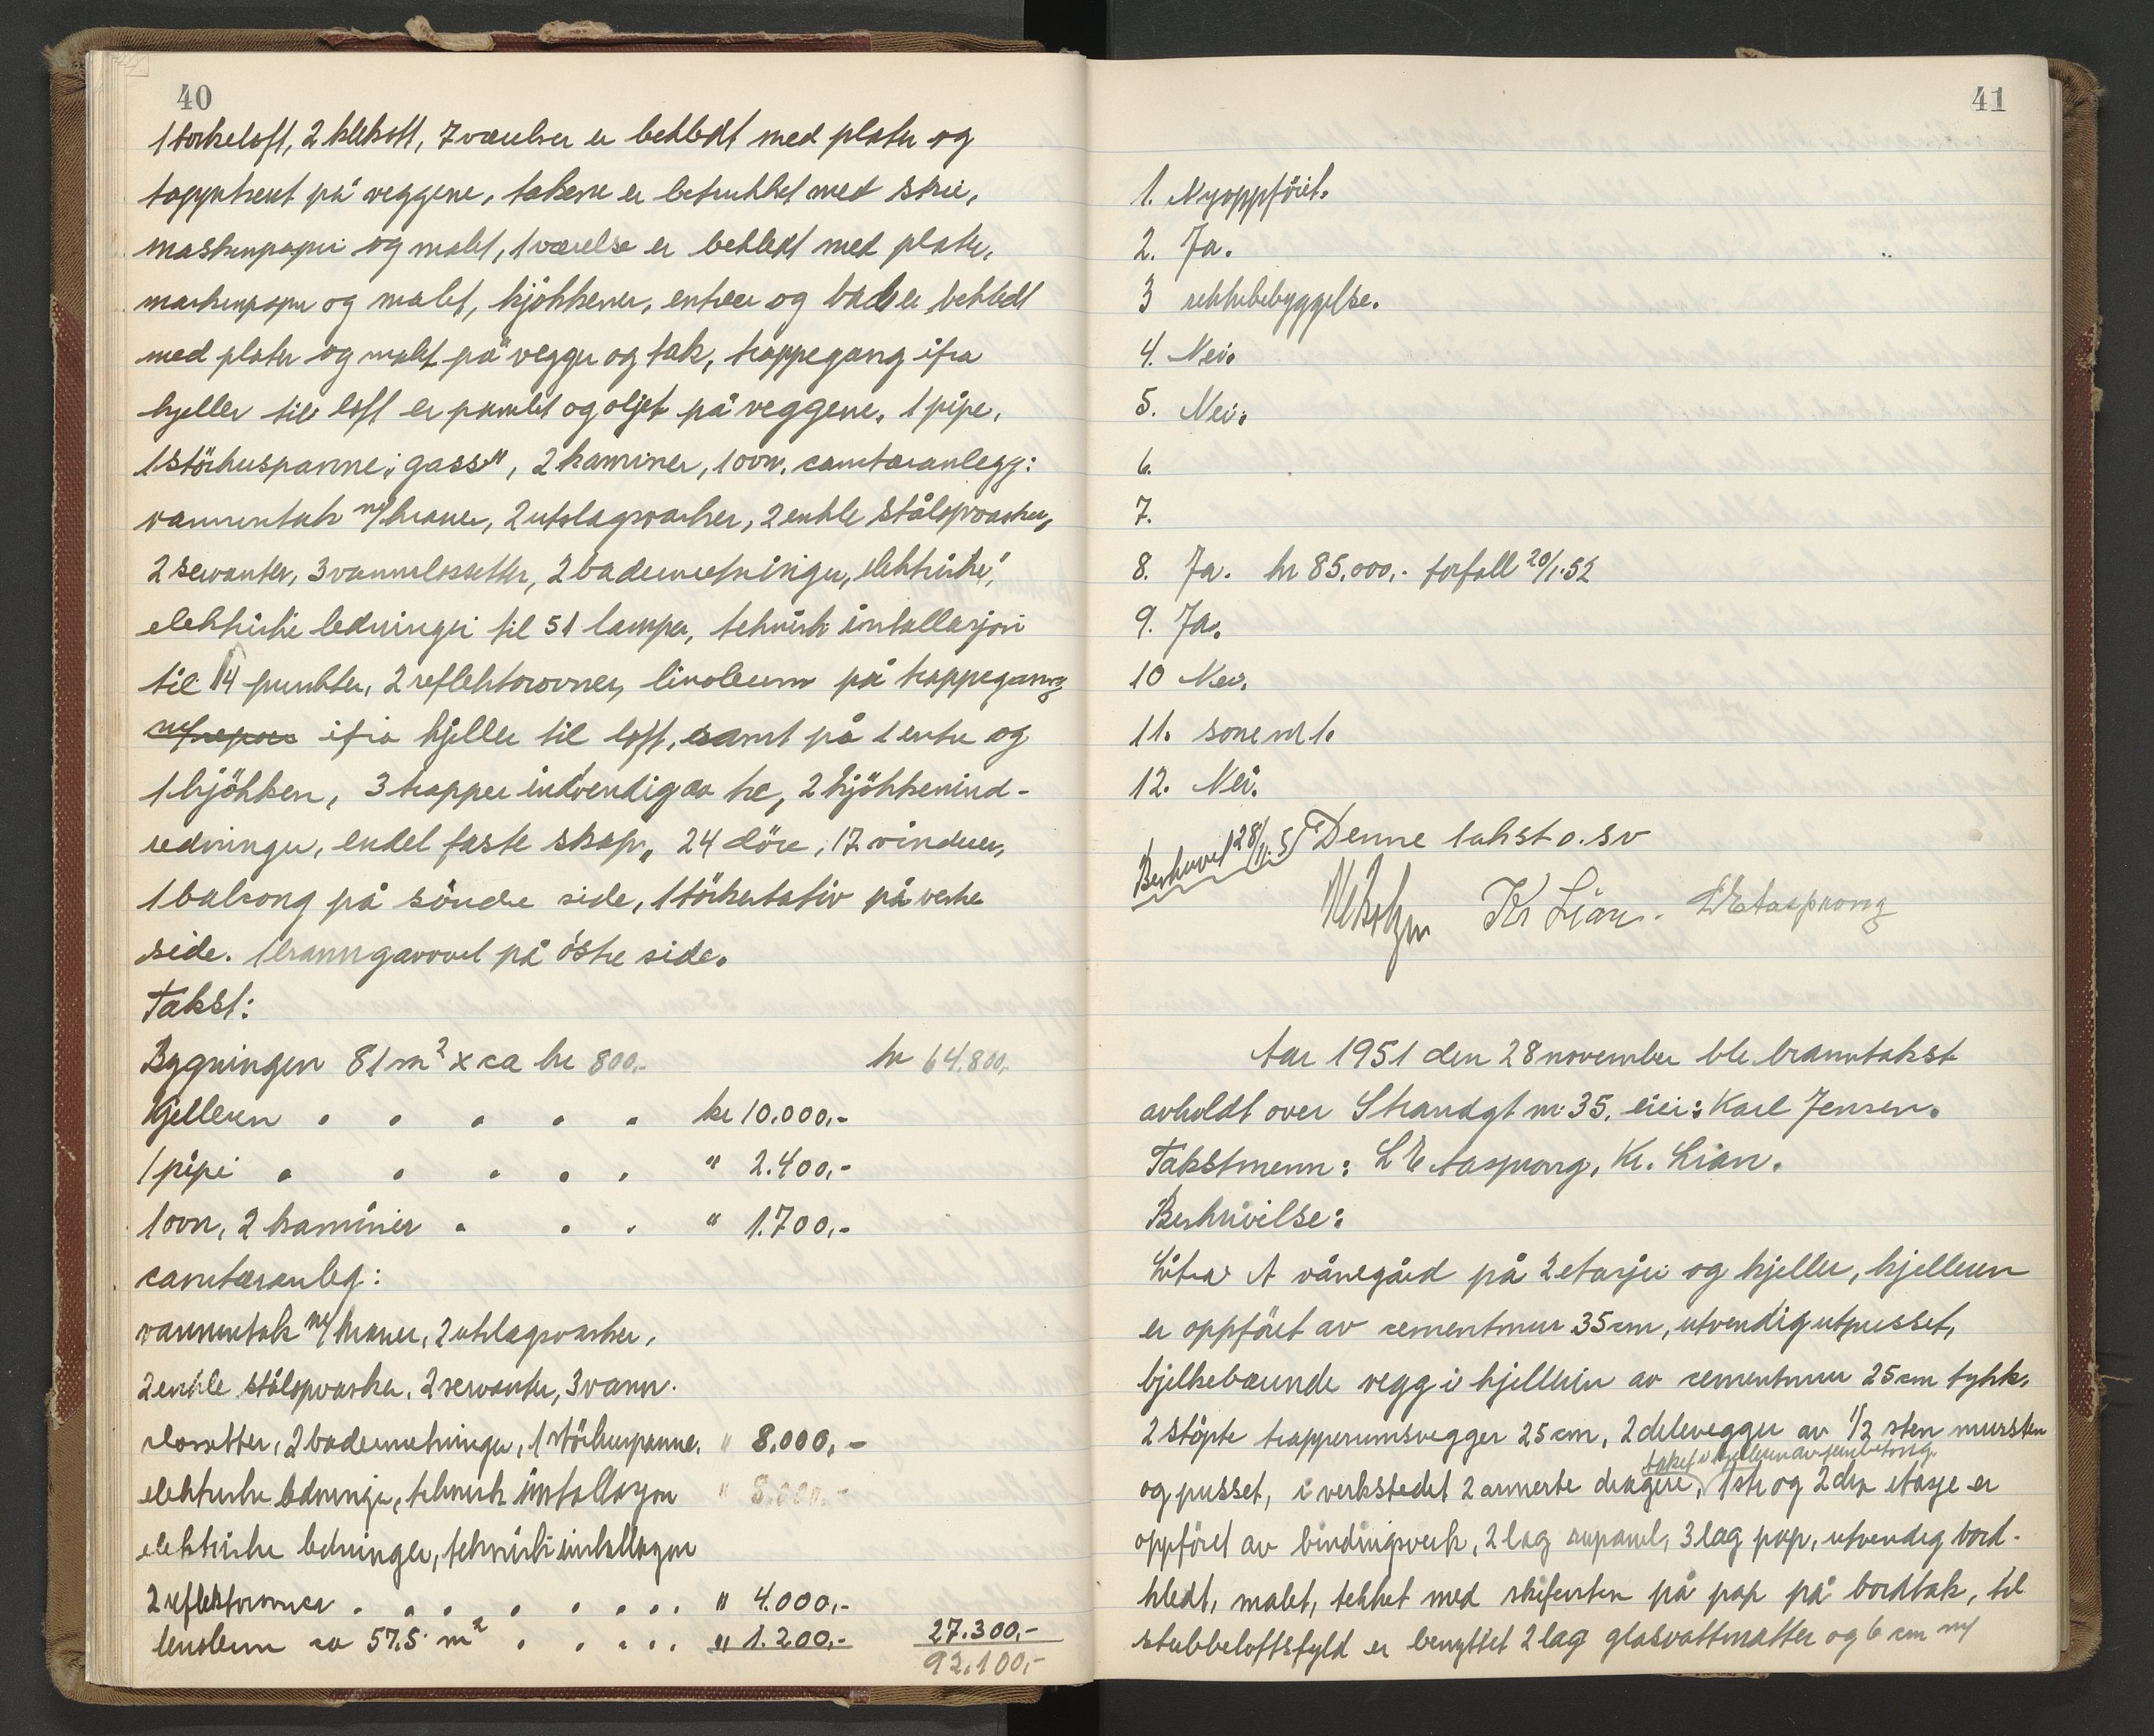 40
1 torkeloft, 2 klekott, 7 værelser er bekledt med plater og
tappetsert på veggene, takene er betrukket med strie,
maskinpapir og malet, 1 værelse er bekledt med plater,
maskinpapir og malet, kjøkkener, entreer og bad er bekledt
med plater og malet på vegger og tak, trappegang ifra
kjeller til loft er panelet og oljet på veggene, 1 pipe,
1 störhuspanne "gass", 2 kaminer, 1 ovn, canitæranlegg:
vanninntak m/kraner, 2 utslagsvasker, 2 enkle stålopvasker,
2 servanter, 3 vannclosetter, 2 badeinnretninger, elektriske",
elektriske ledninger til 51 lamper, teknisk installasjon
til 14 punkter, 2 reflektorovner, linoleum på trappegang
ifra kjeller til loft, samt på 1 entre og
1 kjøkken, 3 trapper indvendig av tre, 2 kjökkenind-
redninger, endel faste skap, 24 döre, 17 vinduer,
1 balkong på söndre side, 1 törkestativ på vestre
side. 1 branngavvel på östre side.
Takst:
Bygningen 81 m² x ca kr 800,- kr 64.800,-
Kjelleren . . . . . kr 10.000,-
1 pipe . . . . . " 2.400,-
1 ovn, 2 kaminer . . . " 1.700,-
canitæranleg:
vanninntak m/kraner, 2 utslagsvasker,
2 enkle stålopvasker, 2 servanter, 3 vann-
closetter, 2 badeinnretninger, 1 störhuspanne. " 8.000,-
elektriske ledninger, teknisk installasjon " 8.000,-
elektriske ledninger, teknisk installasjon
2 reflektorovner . . . . . . . . " 4.000,-
linoleum ca 57,5 m² . . . . . " 1.200,- 27.300,-
92.100,-
41
1. Nyoppföiet.
2. Ja.
3 rekkebebyggelse.
4. Nei.
5. Nei.
6.
7.
8. Ja. kr 85.000,- forfall 20/1-52
9. Ja.
10 Nei.
11. sone nr 1.
12. Nei.
Beskrevet 28/11-51 Denne takst o.sv
Kr Lian. L E Aasprong
Aar 1951 den 28 november ble branntakst
avholdt over Strandgt nr 35, eier: Karl Jensen.
Takstmenn: L E Aasprong, Kr. Lian.
Beskrivelse:
Litra A vånegård på 2 etasjer og kjeller, kjelleren
er oppföret av cementmur 35 cm, utvendig utpusset,
bjelkebærende vegg i kjelleren av cementmur 25 cm tykk,
2 stöpte trapperumsvegger 25 cm, 2 delevegger av 1/2 sten mursten
taket i kjelleren av jernbetong.
og pusset, i verkstedet 2 armerte dragere, 1ste og 2dre etasje er
oppföret av bindingsverk, 2 lag rupanel, 3 lag pap, utvendig bord-
kledt, malet, tekket med skifersten på pap på bordtak, til
stubbeloftsfyld er benyttet 2 lag glasvattmatter og 6 cm m/